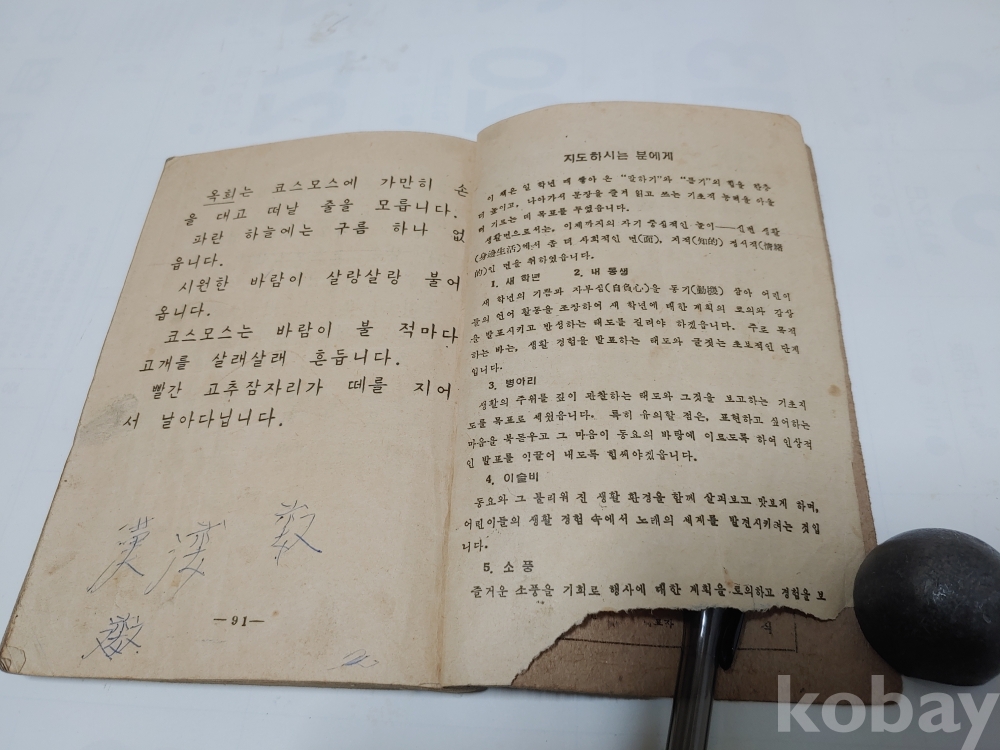 옥희는 코스모스에 가만히 손
을 대고 떠날 줄을 모릅니다.
파란 하늘에는 구름 하나 없
읍니다.
시원한 바람이 살랑살랑 불어
옵니다.
코스모스는 바람이 불 적마다
고개를 살래살래 흔듭니다.
빨간 고추잠자리가 떼를 지어
서 날아다닙니다.
漢
数
数
—91—
지도하시는 분에게
이 책은 일 학년 때 쌓아 온 "말하기"와 "듣기"의 힘을 한층
더 높이고, 나아가서 문장을 즐겨 읽고 쓰는 기초적 능력을 아울
러 기르는 데 목표를 두었읍니다.
생활면으로서는, 이제까지의 자기 중심적인 놀이——신변 생활
(身邊生活)에서 좀 더 사회적인 면(面), 지적(知的) 정서적(情緖
的)인 면을 취하였읍니다.
1. 새 학년 2. 내 동생
새 학년의 기쁨과 자부심(自負心)을 동기(動機) 삼아 어린이
들의 언어 활동을 조장하여 새 학년에 대한 계획의 토의와 감상
을 발표시키고 반성하는 태도를 길러야 하겠읍니다. 주로 목적
하는 바는, 생활 경험을 발표하는 태도와 글짓는 초보적인 단계
입니다.
3. 병아리
생활의 주위를 깊이 관찰하는 태도와 그것을 보고하는 기초적
도를 목표로 세웠읍니다. 특히 유의할 점은, 표현하고 싶어하는
마음을 북돋우고 그 마음이 동요의 바탕에 이르도록 하여 인상적
인 발표를 이끌어 내도록 힘써야겠읍니다.
4. 이슬비
동요와 그 둘리워 진 생활 환경을 함께 살펴보고 맛보게 하며,
어린이들의 생활 경험 속에서 노래의 세계를 발견시키려는 것입
니다.
5. 소 풍
즐거운 소풍을 기회로 행사에 대한 계획을 토의하고 경험을 보
kobay